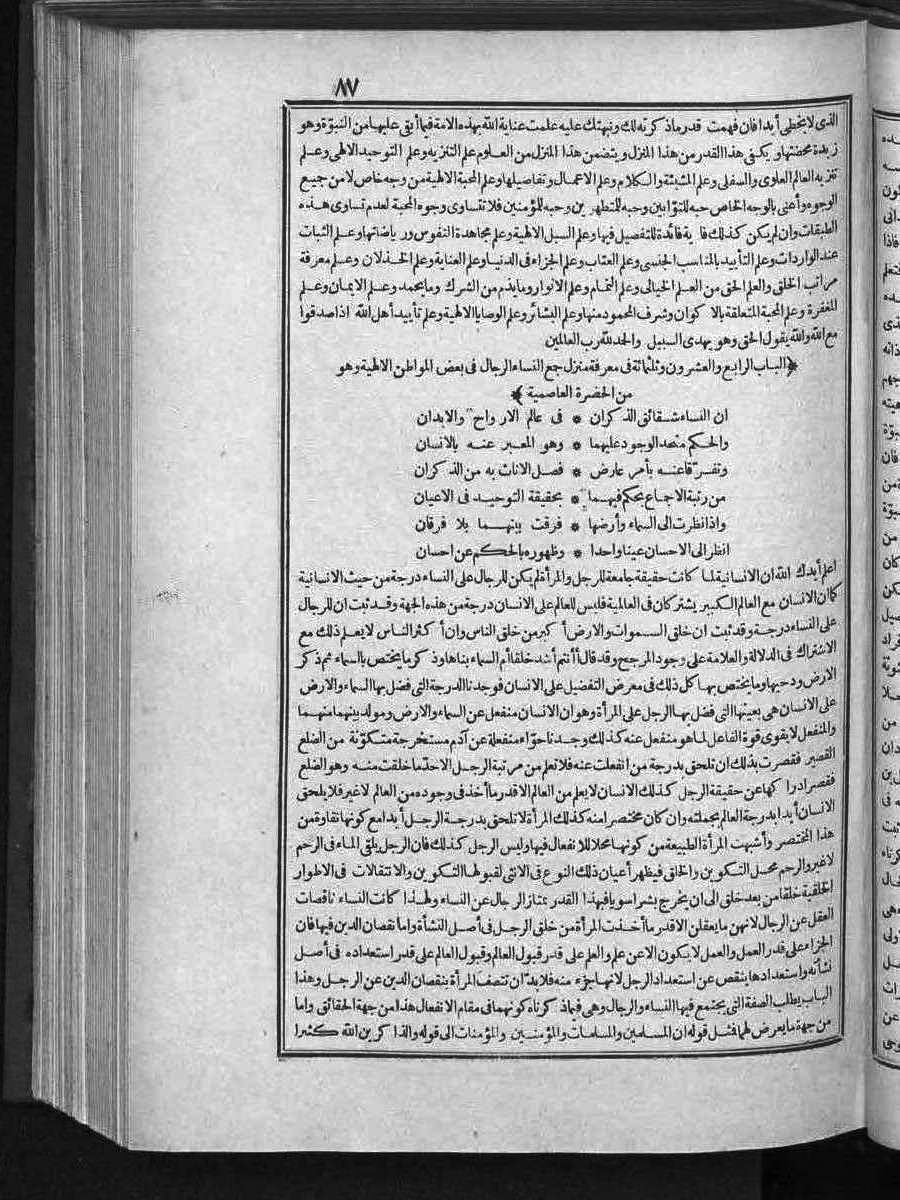 ٨٧
الذى لا يخطئ أبدا فان فهمت قدر ما ذكرته لك ونبهتك عليه علمت عناية الله بهذه الامة فيما أبقى عليها من النبوة وهو
زبدة مخضتها ويكفى هذا القدر من هذا المنزل ويتضمن هذا المنزل من العلوم علم التنزيه وعلم التوحيد الالهى وعلم
تنزيه العالم العلوى والسفلى وعلم المشيئة والكلام وعلم الاعمال وتفاصيلها وعلم المحبة الالهية من وجه خاص لا من جميع
الوجوه وأعنى بالوجه الخاص حبه للتوابين وحبه للمتطهرين وحبه للمؤمنين فلا تتساوى وجوه المحبة لعدم تساوى هذه
الطبقات وان لم يكن كذلك فأية فائدة للتفصيل فيها وعلم السبل الالهية وعلم مجاهدة النفوس ورياضاتها وعلم الثبات
عند الواردات وعلم التأييد بالمناسب الجنسى وعلم العتاب وعلم الجزاء فى الدنيا وعلم العناية وعلم الخذلان وعلم معرفة
مراتب الخلق والعلم الحق من العلم الخيالى وعلم التمام وعلم الانوار وما يذم من الشرك وما يحمد وعلم الايمان وعلم
المغفرة وعلم المحبة المتعلقة بالاكوان وشرف المحمود منها وعلم البشائر وعلم الوصايا الالهية وعلم تأييد أهل الله اذا صدقوا
مع الله والله يقول الحق وهو يهدى السبيل والحمد لله رب العالمين
﴿الباب الرابع والعشرون وثلثمائة فى معرفة منزل جمع النساء الرجال فى بعض المواطن الالهية وهو
من الحضرة العاصمية﴾
ان النساء شقائق الذكران * فى عالم الارواح والابدان
والحكم متحد الوجود عليهما * وهو المعبر عنه بالانسان
وتفرقا عنه بأمر عارض * فصل الاناث به من الذكران
من رتبة الاجماع يحكم فيهما * بحقيقة التوحيد فى الاعيان
واذا نظرت الى السماء وأرضها * فرقت بينهما بلا فرقان
انظر الى الاحسان عينا واحدا * وظهوره بالحكم عن احسان
اعلم أيدك الله ان الانسانية لما كانت حقيقة جامعة للرجل والمرأة لم يكن للرجال على النساء درجة من حيث الانسانية
كما ان الانسان مع العالم الكبير يشتركان فى العالمية فليس للعالم على الانسان درجة من هذه الجهة وقد ثبت ان للرجال
على النساء درجة وقد ثبت ان خلق السموات والارض أكبر من خلق الناس وان أكثر الناس لا يعلم ذلك مع
الاشتراك فى الدلالة والعلامة على وجود المرجح وقد قال أأنتم أشد خلقا أم السماء بناها وذكر ما يختص بالسماء ثم ذكر
الارض ودحيها وما يختص بها كل ذلك فى معرض التفضيل على الانسان فوجدنا الدرجة التى فضل بها السماء والارض
على الانسان هى بعينها التى فضل بها الرجل على المرأة وهو ان الانسان منفعل عن السماء والارض ومولد بينهما منهما
والمنفعل لا يقوى قوة الفاعل لما هو منفعل عنه كذلك وجدنا حواء منفعلة عن آدم مستخرجة متكونة من الضلع
القصير فقصرت بذلك ان تلحق بدرجة من انفعلت عنه فلا تعلم من مرتبة الرجل الا حد ما خلقت منه وهو الضلع
فقصر ادراكها عن حقيقة الرجل كذلك الانسان لا يعلم من العالم الا قدر ما أخذ فى وجوده من العالم لا غير فلا يلحق
الانسان أبدا بدرجة العالم بجملته وان كان مختصرا منه كذلك المرأة لا تلحق بدرجة الرجل أبدا مع كونها نقاوة من
هذا المختصر وأشبهت المرأة الطبيعة من كونها محلا للانفعال فيها وليس الرجل كذلك فان الرجل يلقى الماء فى الرحم
لا غير والرحم محل التكوين والخلق فيظهر أعيان ذلك النوع فى الانثى لقبولها التكوين والانتقالات فى الاطوار
الخلقية خلقا من بعد خلق الى ان يخرج بشرا سويا فبهذا القدر يمتاز الرجال عن النساء ولهذا كانت النساء ناقصات
العقل عن الرجال لانهن ما يعقلن الا قدر ما أخذت المرأة من خلق الرجل فى أصل النشأة واما نقصان الدين فيها فان
الجزاء على قدر العمل والعمل لا يكون الا عن علم والعلم على قدر قبول العالم وقبول العالم على قدر استعداده فى أصل
نشأته واستعدادها ينقص عن استعداد الرجل لانها جزء منه فلا بد ان تتصف المرأة بنقصان الدين عن الرجل وهذا
الباب يطلب الصفة التى يجتمع فيها النساء والرجال وهى فيما ذكرناه كونهما فى مقام الانفعال هذا من جهة الحقائق واما
من جهة ما يعرض لهما فمثل قوله ان المسلمين والمسلمات والمؤمنين والمؤمنات الى قوله والذاكرين الله كثيرا